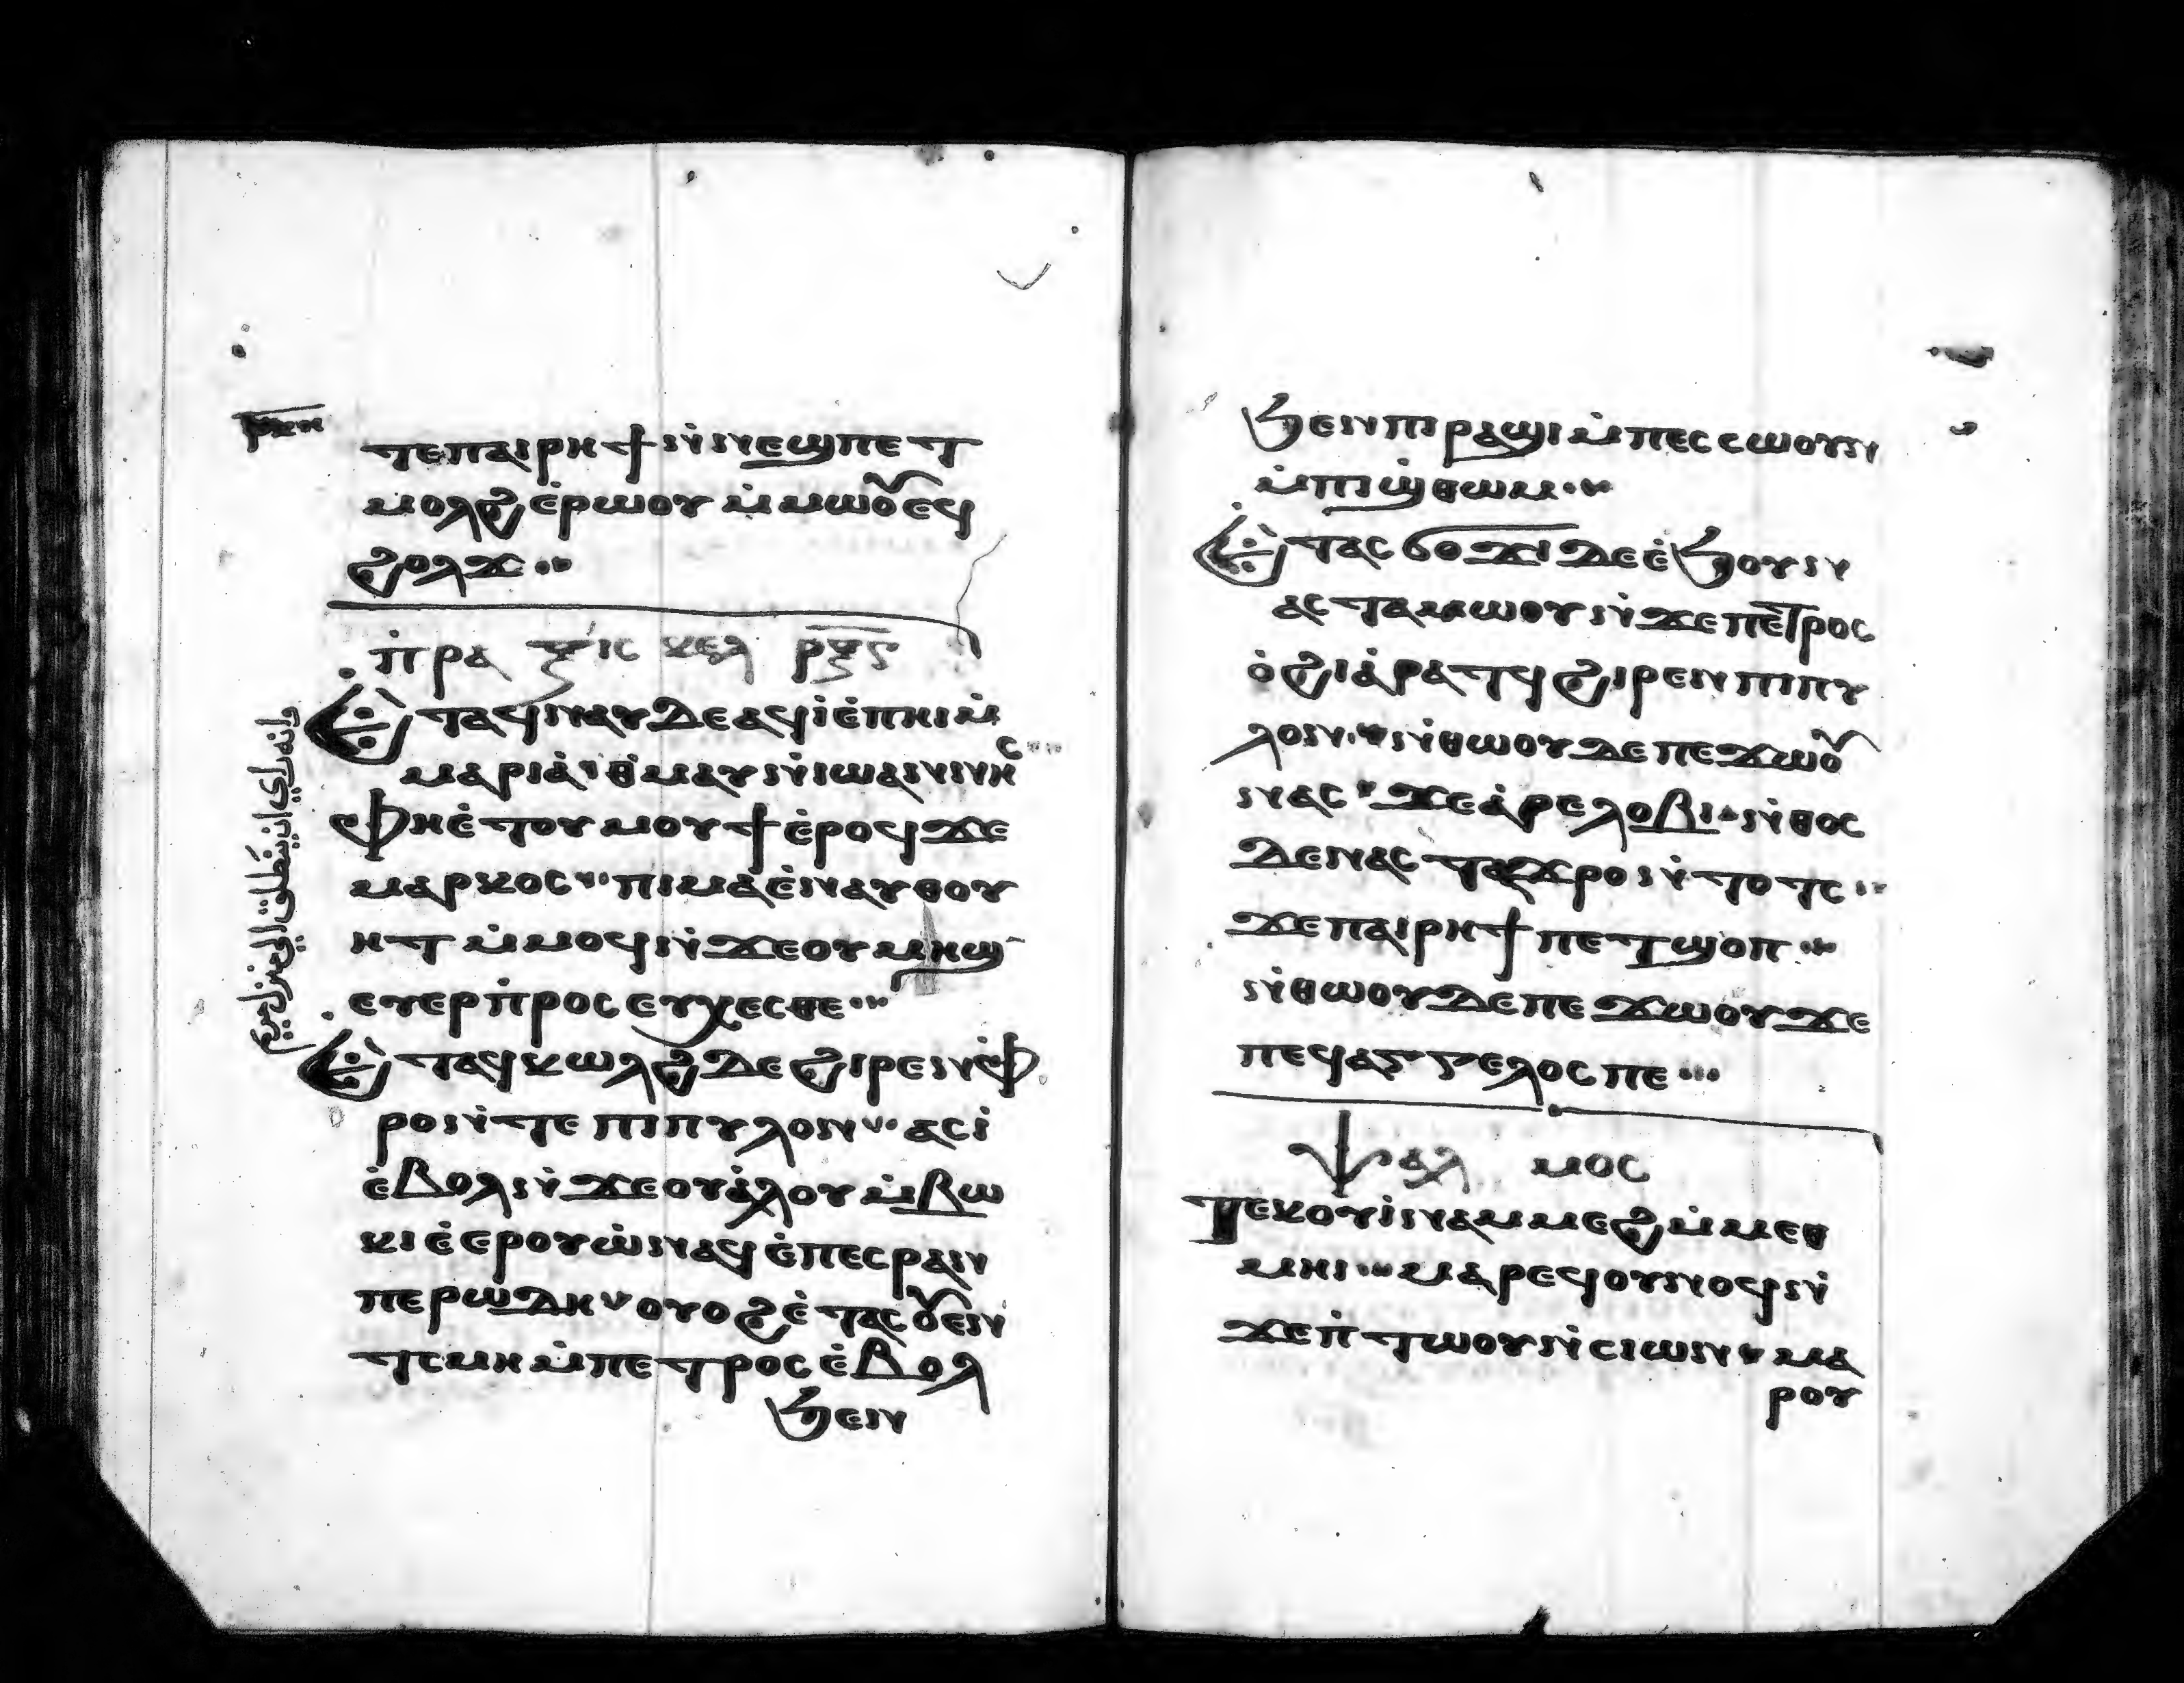 ⲣⲕⲏ
ⲧⲉⲡⲁⲓⲣⲏϯⲛ̇ⲛⲉϣⲡⲉⲧ
ⲙⲟⲗϩⲉ̇ⲣⲱⲟⲩ ⲙ̇ⲙⲱⲟⲩ ⲉϥ
ϩⲟⲗϫ··
ⲡ̇ⲣⲁⲝⲓⲥ ⲕⲉⲗ
Ⲉ̇ⲧⲁϥⲛⲁⲩⲇⲉⲁϥⲓ̇ⲉ̇ⲡⲏⲓⲙ̇
ⲙⲁⲣⲓⲁ̇ⲑ̇ⲙⲁⲩⲛ̇ⲓⲱⲁⲛⲛⲏⲥ
ⲫⲏⲉ̇ⲧⲟⲩⲙⲟⲩϯⲉ̇ⲣⲟϥϫⲉ
ⲙⲁⲣⲕⲟⲥ··ⲡⲓⲙⲁⲉ̇ⲛⲁⲩⲑⲟⲩ
ⲏⲧ ⲙ̇ⲙⲟϥⲛ̇ϫⲉⲟⲩⲙⲏϣ
ⲉⲩⲉⲣⲡ̇ⲣⲟⲥⲉⲩⲭⲉⲥⲑⲉ···
Ⲉ̇ⲧⲁϥⲕⲱⲗϩⲇⲉϩⲓⲣⲉⲛⲫ̇
ⲣⲟⲛ̇ⲧⲉ ⲡⲓⲡⲩⲗⲟⲛ··ⲁⲥⲓ̇
ⲉ̇ⲃⲟⲗⲛ̇ϫⲉⲟⲩⲁ̇ⲗⲟⲩⲙ̇ⲃⲱ
ⲕⲓⲉ̇ⲉⲣⲟⲩⲱ̇ⲛⲁϥⲉ̇ⲡⲉⲥⲣⲁⲛ
ⲡⲉ ⲣⲱⲇⲏ·ⲟⲩⲟϩⲉ̇ⲧⲁⲥⲟⲩⲉⲛ
ⲧⲥⲙⲏⲙ̇ⲡⲉⲧⲣⲟⲥⲉ̇ⲃⲟⲗ
ϧⲉⲛ
وانه راي ان ينطلق الي منزل مريم
ϧⲉⲛⲡⲓⲣⲁϣⲓⲙ̇ⲡⲉⲥⲥⲱⲟⲩⲛ
ⲙ̇ⲡⲓϣ̇ⲑⲱⲙ··
Ⲉ̇ⲧⲁⲥϭⲟϫⲓ ⲇⲉⲉ̇ϧⲟⲩⲛ
ⲁⲥⲧⲁⲙⲱⲟⲩⲛ̇ϫⲉⲡⲉⲧⲣⲟⲥ
ⲟ̇ϩⲓⲁ̇ⲣⲁⲧϥϩⲓⲣⲉⲛⲡⲓⲡⲩ
ⲗⲟⲛ··ⲛ̇ⲑⲱⲟⲩⲇⲉⲡⲉϫⲱⲟⲩ
ⲛⲁⲥ·ϫⲉⲁ̇ⲣⲉⲗⲟⲃⲓ·ⲛ̇ⲑⲟⲥ
ⲇⲉⲛⲁⲥⲧⲁϫⲣⲟⲛ̇ⲧⲟⲧⲥ··
ϫⲉⲡⲁⲓⲣⲏϯⲡⲉⲧϣⲟⲡ··
ⲛ̇ⲑⲱⲟⲩⲇⲉⲡⲉϫⲱⲟⲩϫⲉ
ⲡⲉϥⲁⲅⲅⲉⲗⲟⲥⲡⲉ···
ⲯⲁⲗ ⲙⲟⲥ
Ⲡⲉⲕⲟⲩⲓ̇ⲛⲁⲙⲙⲉϩⲙ̇ⲙⲉⲑ
ⲙⲏⲓ··ⲙⲁⲣⲉϥⲟⲩⲛⲟϥⲛ̇
ϫⲉⲡ̇ⲧⲱⲟⲩⲛ̇ⲥⲓⲱⲛ·ⲙⲁ
ⲣⲟⲩ